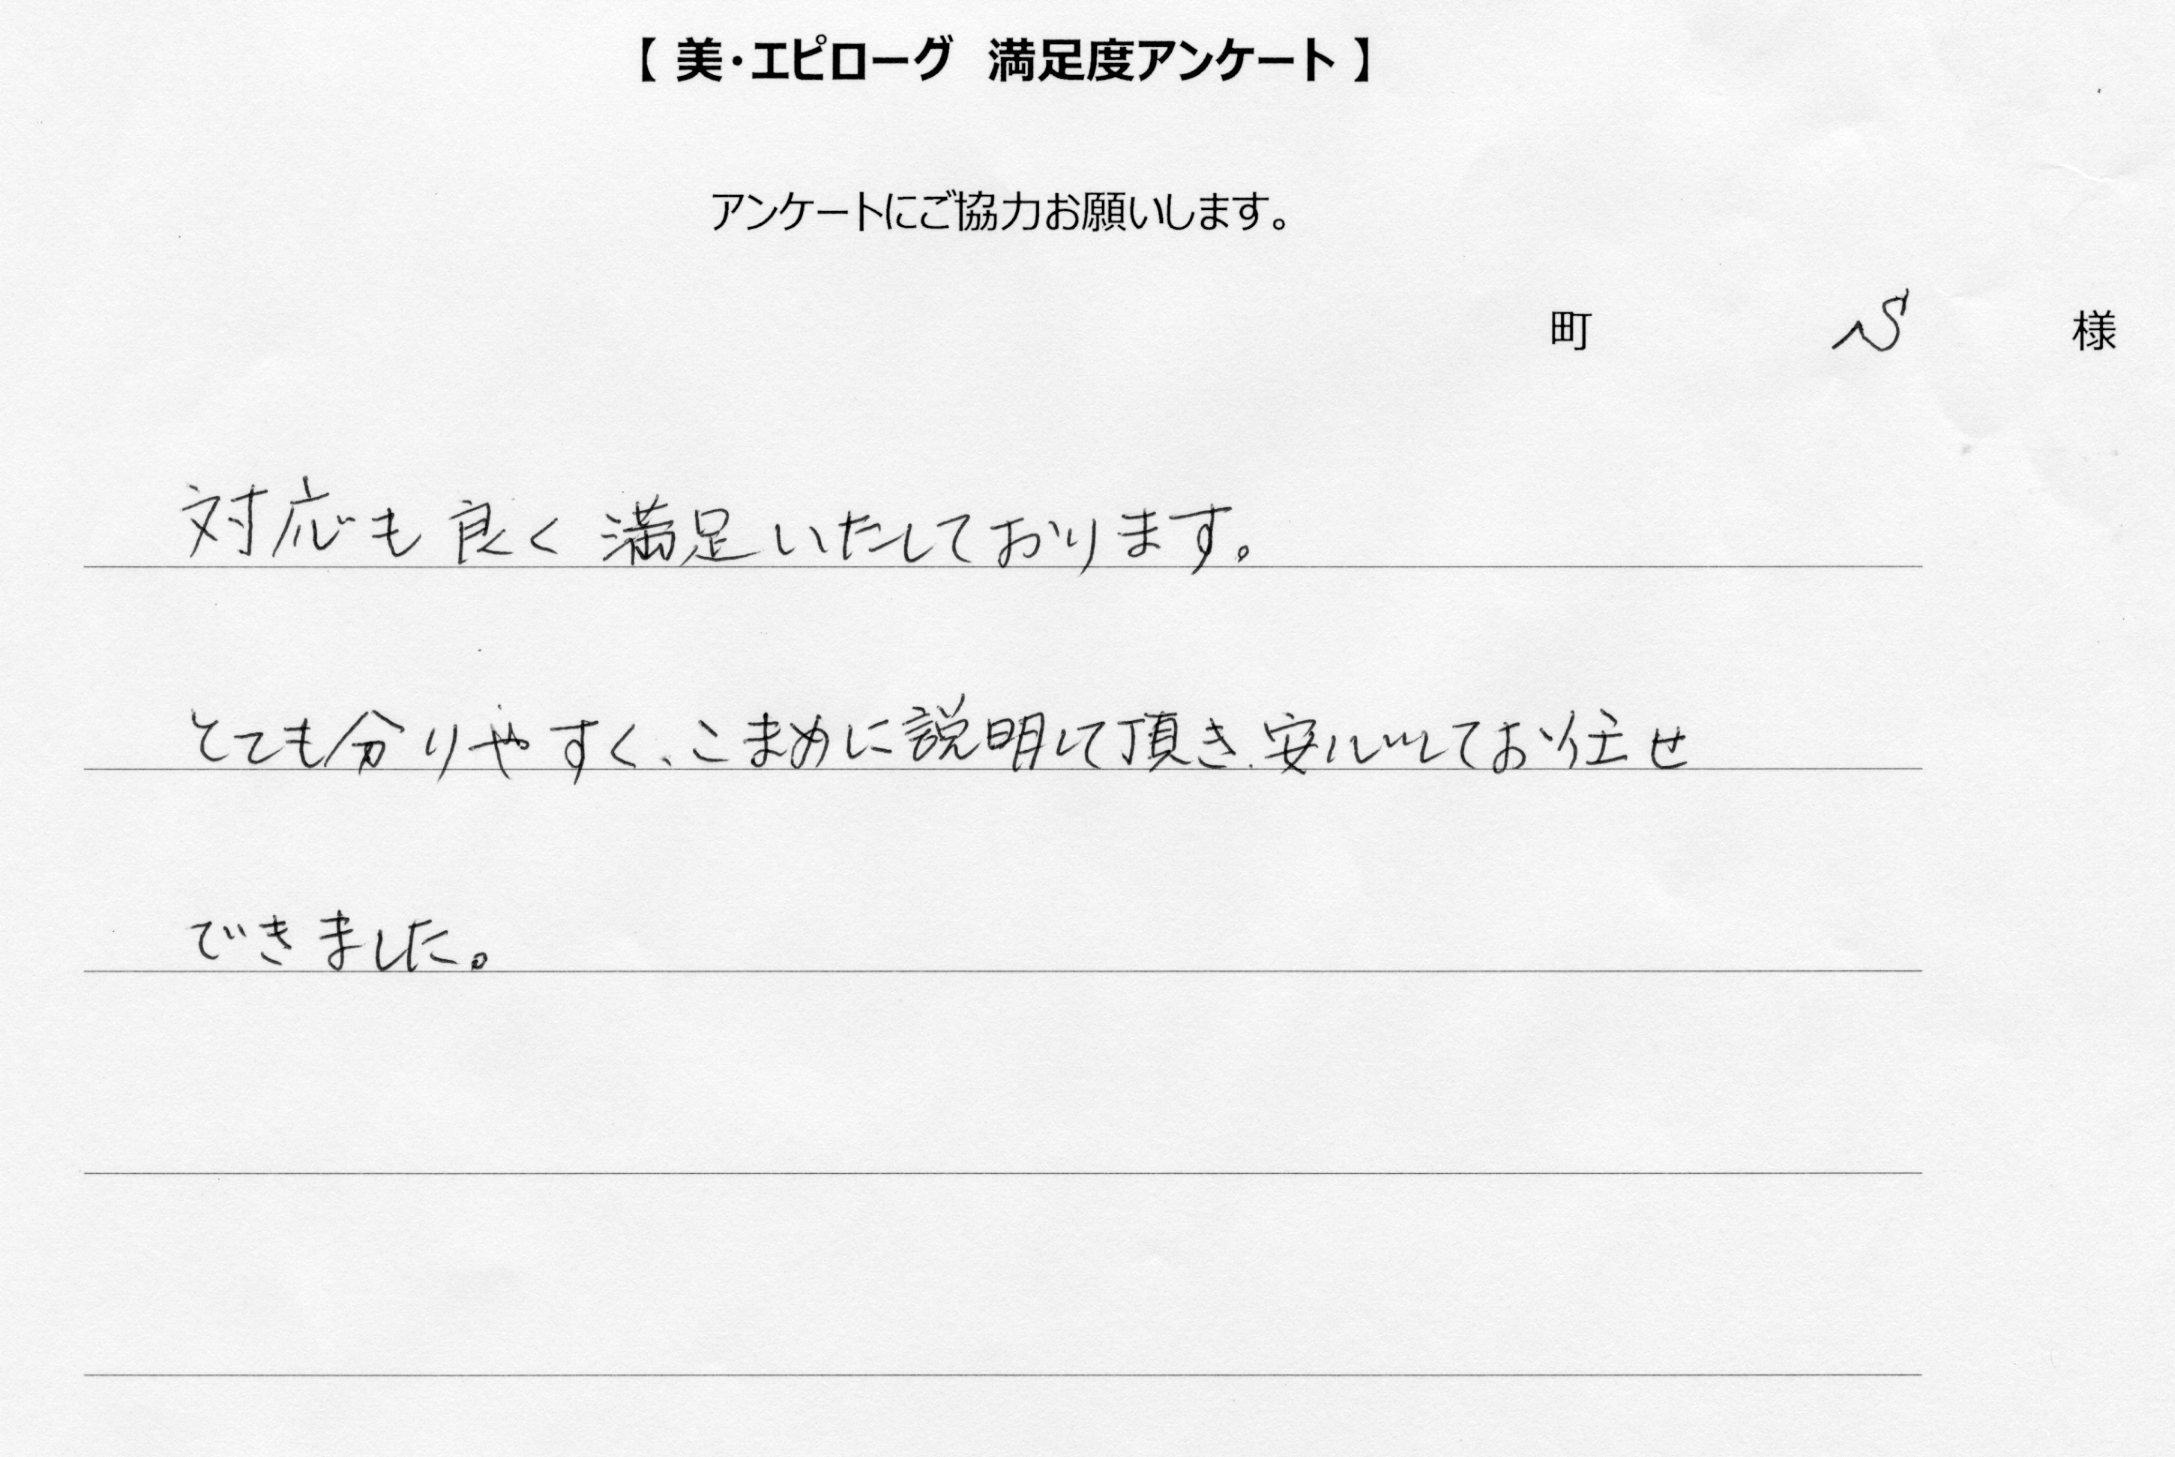 【 美・エピローグ 満足度アンケート 】
アンケートにご協力お願いします。
町 S 様
対応も良く満足いたしております。
とても分りやすく、こまめに説明して頂き、安心してお任せ
できました。